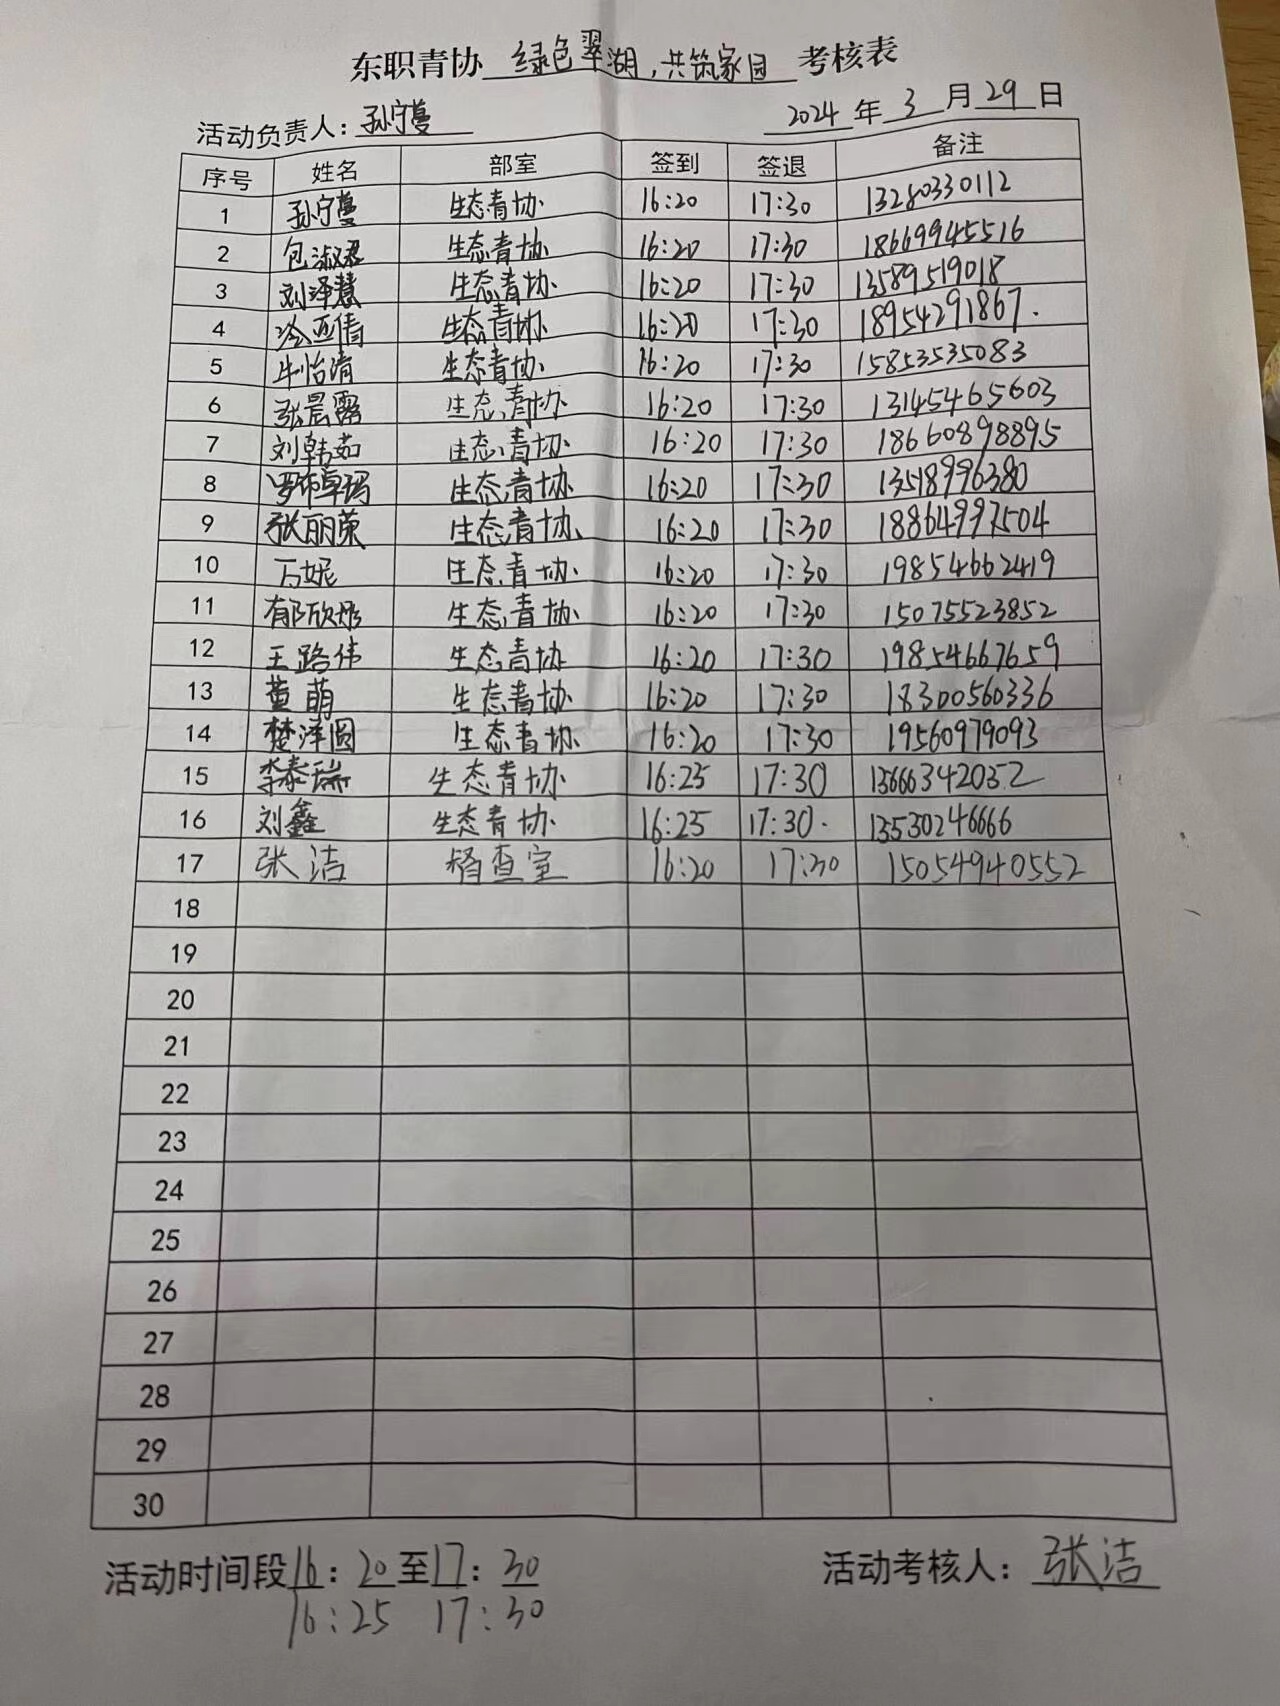 东职青协 绿色翠湖,共筑家园 考核表
活动负责人: 孙宁蔓 2024 年 3 月 29 日
序号 姓名 部室 签到 签退 备注
1 孙宁蔓 生态青协 16:20 17:30 13280330112
2 包淑君 生态青协 16:20 17:30 18669945516
3 刘泽慧 生态青协 16:20 17:30 13589519018
4 冷亚倩 生态青协 16:20 17:30 18954291867.
5 牛怡清 生态青协 16:20 17:30 15853535083
6 张晨露 生态青协 16:20 17:30 13145465603
7 刘韩茹 生态青协 16:20 17:30 18660898895
8 罗布卓玛 生态青协 16:20 17:30 13518996380
9 张丽荣 生态青协 16:20 17:30 18864997504
10 万妮 生态青协 16:20 17:30 19854662419
11 郁欣彤 生态青协 16:20 17:30 15075523852
12 王路伟 生态青协 16:20 17:30 19854667659
13 董萌 生态青协 16:20 17:30 18300560336
14 楚泽圆 生态青协 16:20 17:30 19560979093
15 李泰瑞 生态青协 16:25 17:30 13666342052
16 刘鑫 生态青协 16:25 17:30. 13530246666
17 张洁 督查室 16:20 17:30 15054940552
18
19
20
21
22
23
24
25
26
27
28
29
30
活动时间段16:20至17:30 活动考核人: 张洁
16:25 17:30